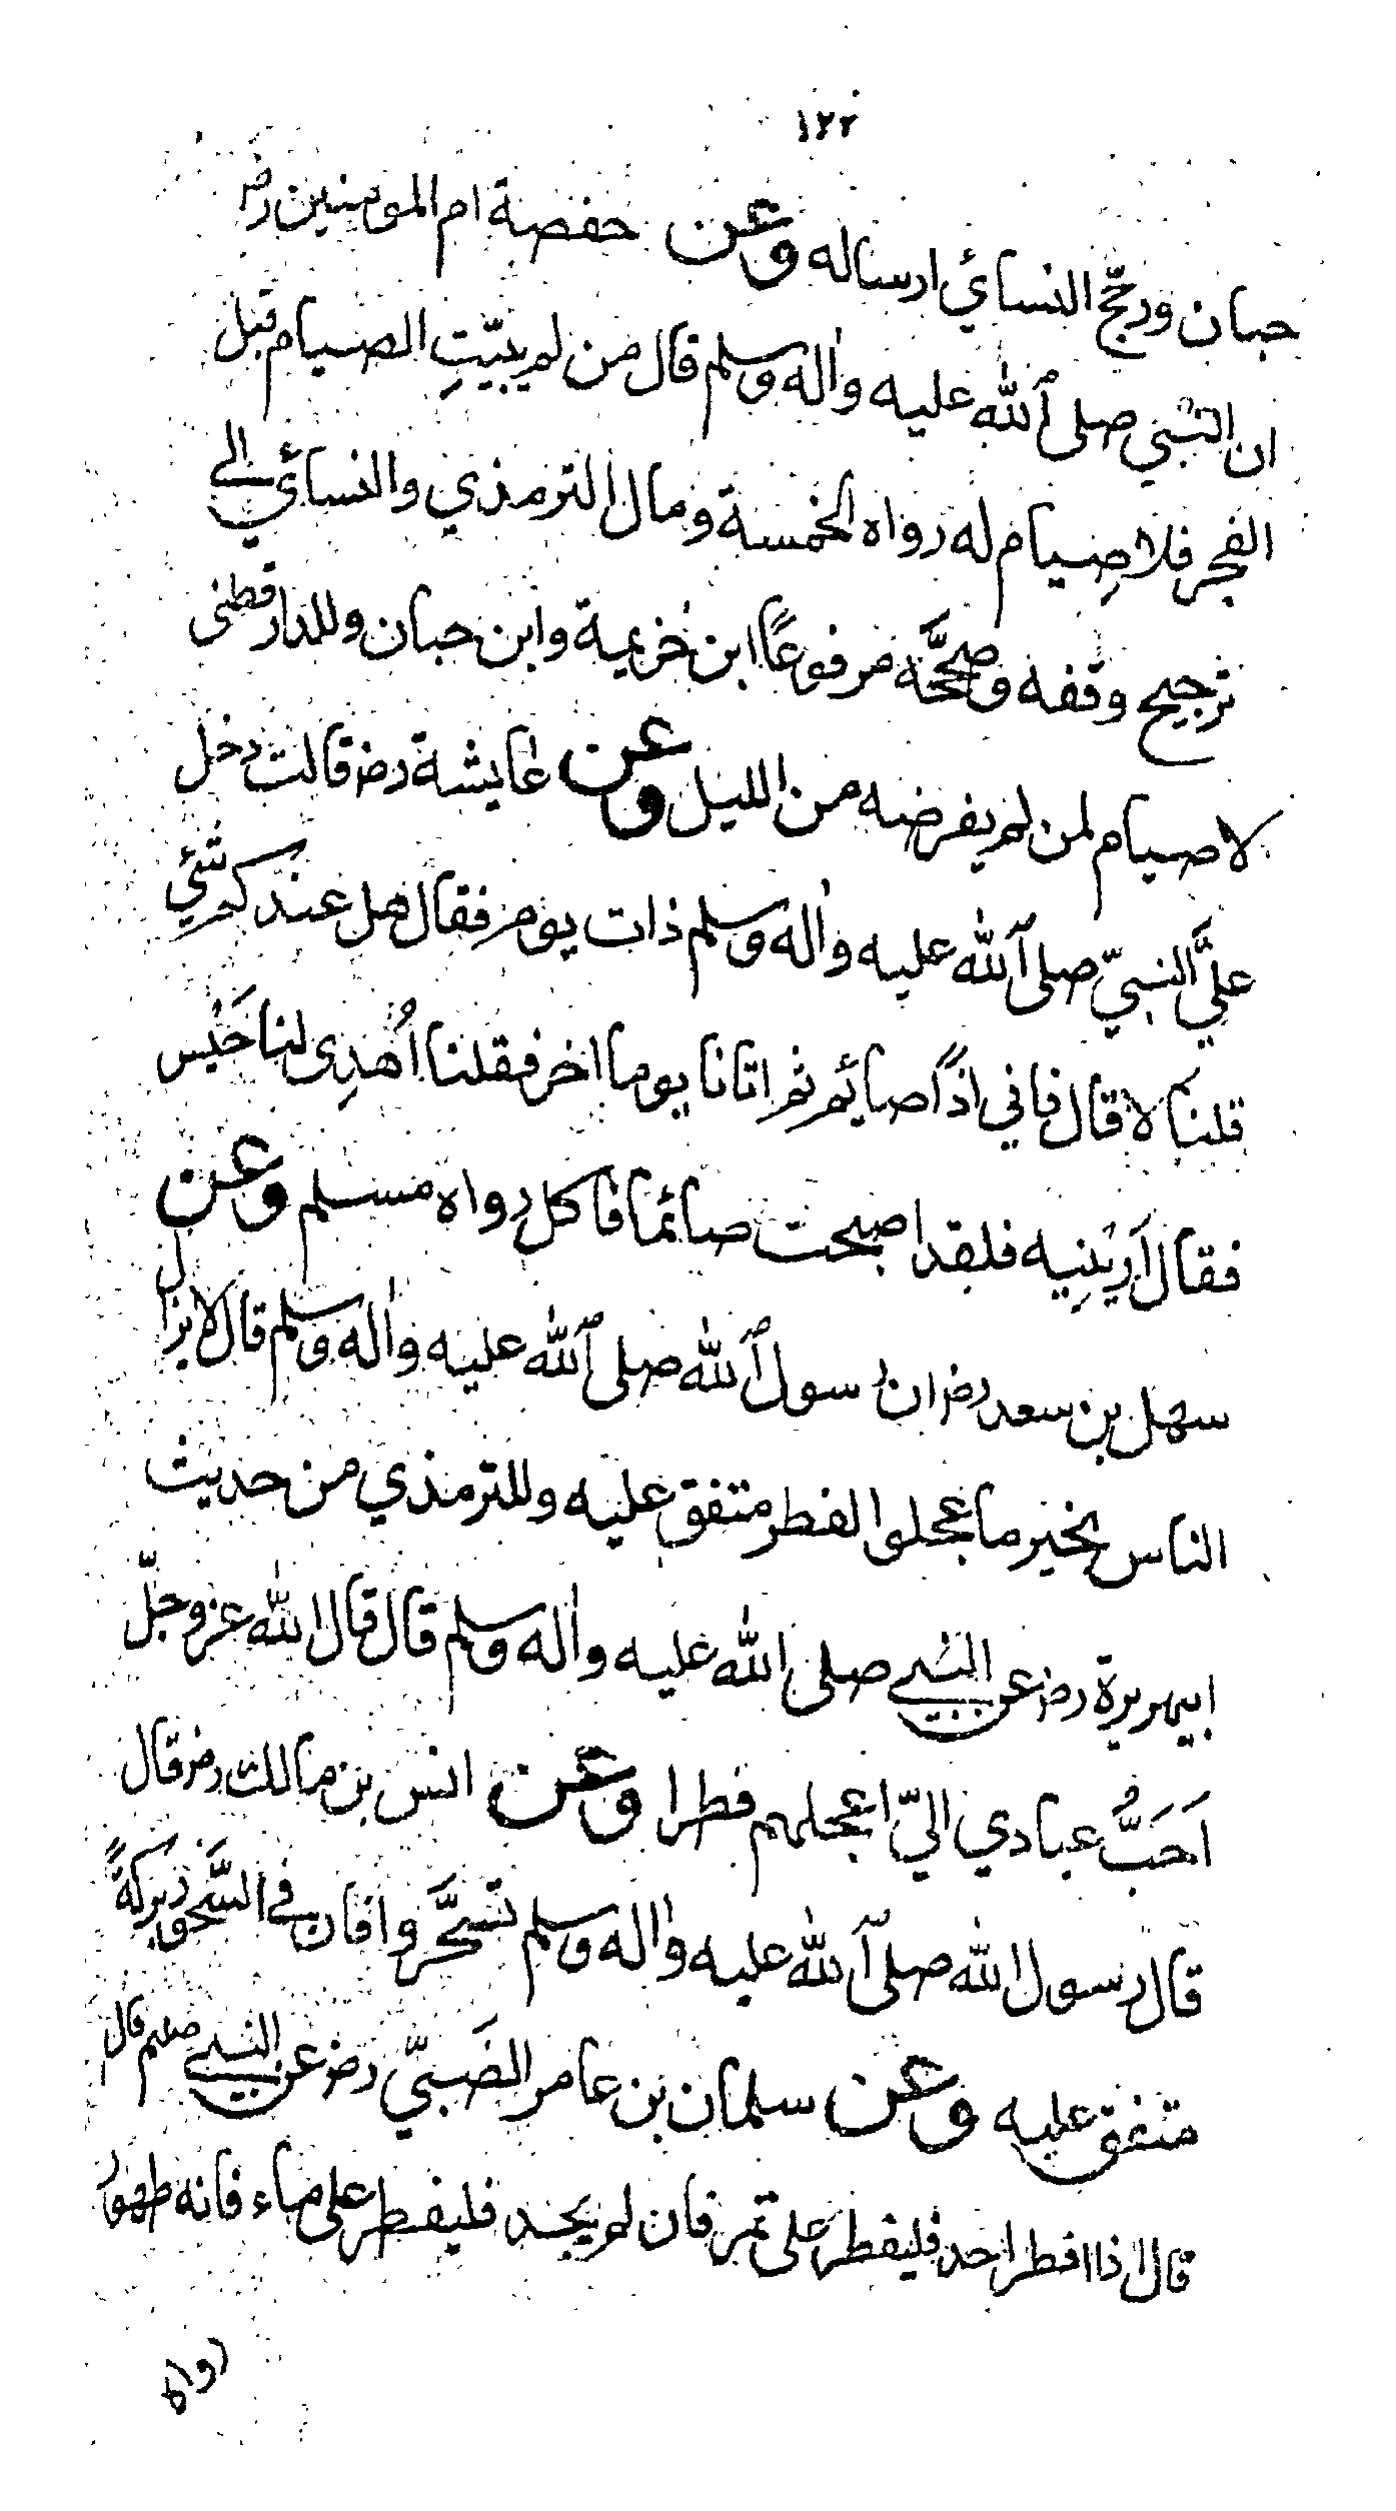 ١٢٢
حبان ورجّح النسائي ارساله وعن حفصة ام المومنين رض
ان النبي صلى الله عليه واله وسلم قال من لم يبيّتِ الصيام قبل
الفجر فلا صِيام له رواه الخمسة ومال الترمذي والنسائي الى
ترجيح وقفه وصحَّحه مرفوعًا ابن خزيمة وابن حبان وللدارقطني
لا صيام لمن لم يفرضه من الليل وعن عايشة رض قالت دخل
عليَّ النبيّ صلى الله عليه واله وسلم ذات يوم فقال هل عندكم شئي
قلنا لا قال فاني اذًا صايم ثم اتانا يوما اخر فقلنا اُهدِى لنا حَيْس
فقال اَرِيْنِيه فلقد اصبحت صائما فاكل رواه مسلم وعن
سهل بن سعد رض ان رسول الله صلى الله عليه واله وسلم قال لا يزال
الناس بخير ما عجلوا الفطر متفق عليه وللترمذي من حديث
ابيهريرة رض عن النبي صلى الله عليه واله وسلم قال قال الله عز وجلّ
اَحَبُّ عبادي اليّ اعجلهم فطرا وعن انس بن مالك رض قال
قال رسول الله صلى الله عليه واله وسلم تسحَّروا فان في السَّحور بركةً
متفق عليه وعن سلمان بن عامر الضَبيّ رض عن النبي صلعم قال
قال اذا افطر احد فليفطر على تمر فان لم يجد فليفطر على ماء فانه طهور
رواه